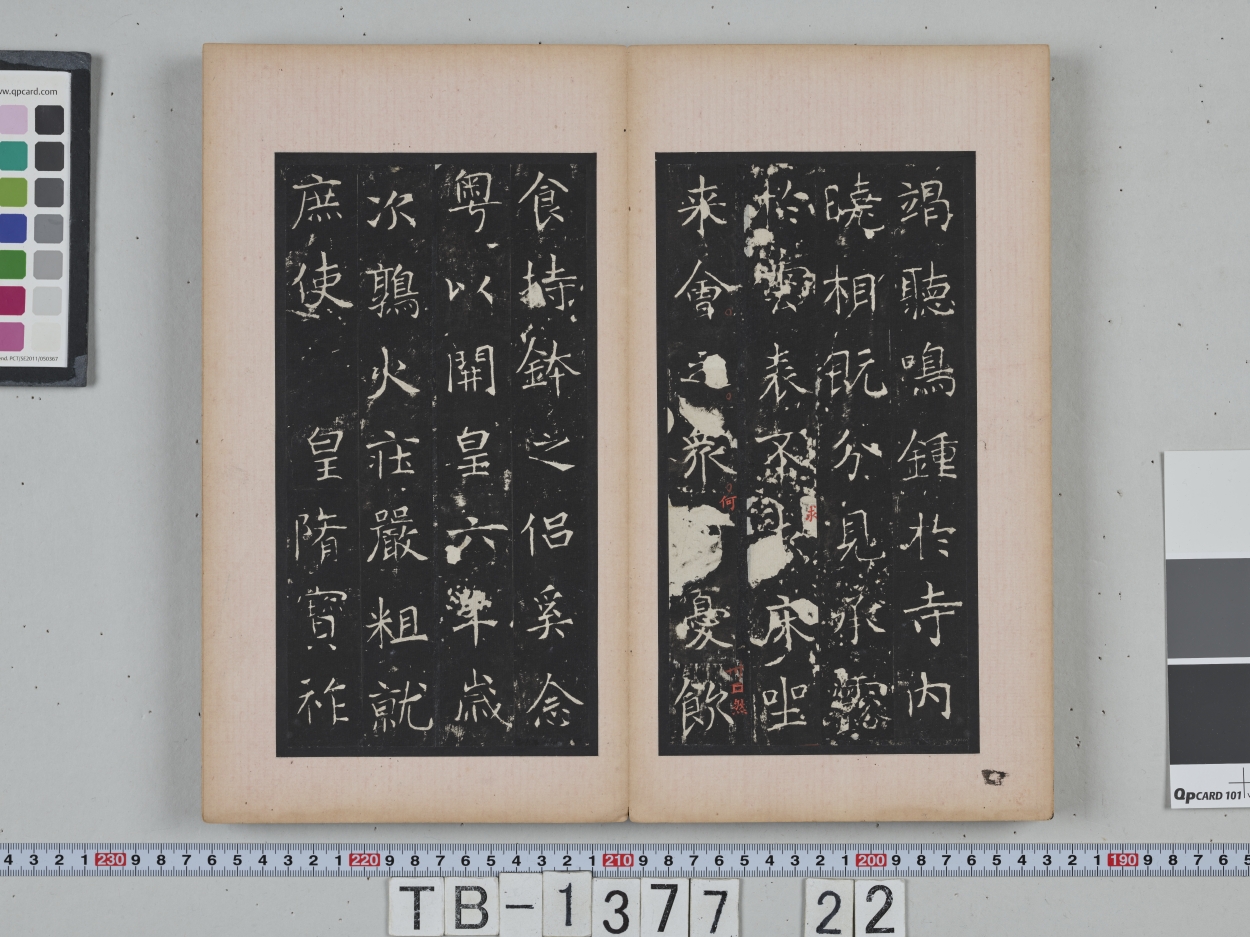 竭聽鳴鍾於寺内
曉相既分見承露
於雲表不
求
床坐
来會之衆
何
憂飲
食持鉢之侣奚念
粤以開皇六年歲
次鶉火莊嚴粗就
庶使
皇隋寶祚
www.qpcard.com
QPCARD 101
4 3 2 1 230 9 8 7 6 5 4 3 2 1 220 9 8 7 6 5 4 3 2 1 210 9 8 7 6 5 4 3 2 1 200 9 8 7 6 5 4 3 2 1 190 9 8 7 6 5
TB-1377 22